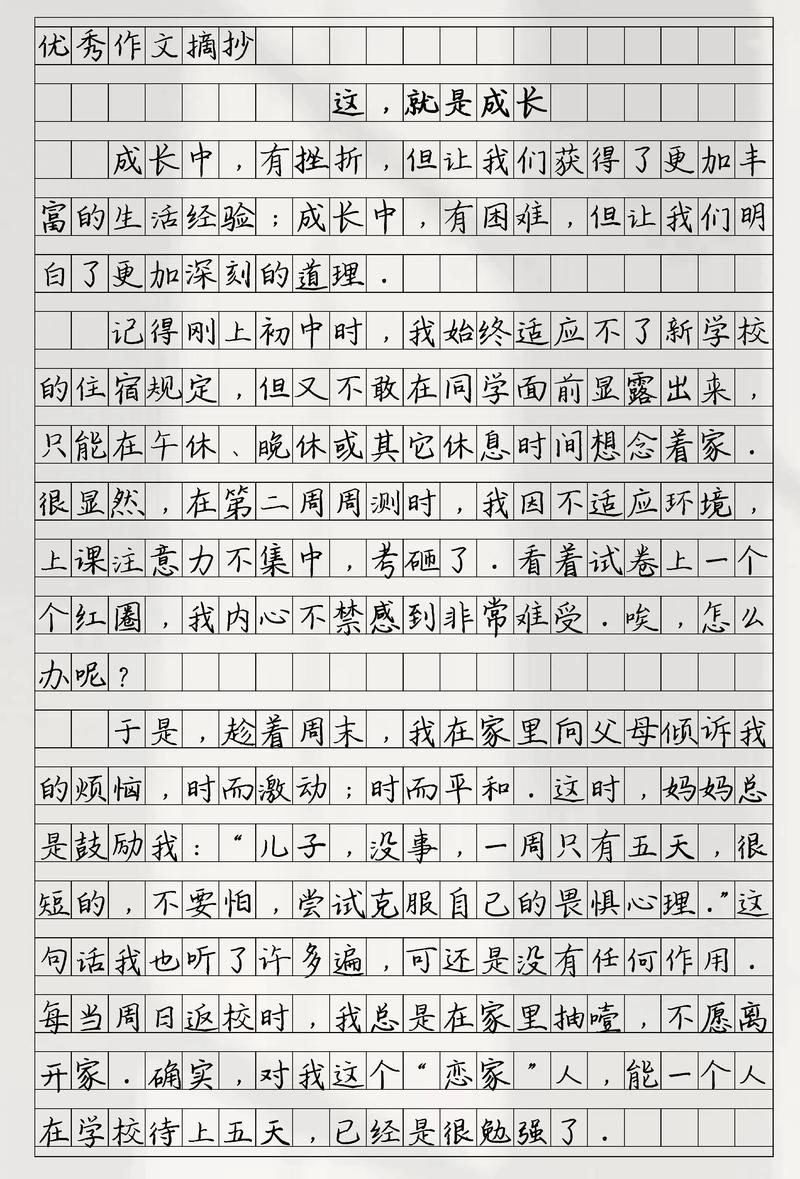 优秀作文摘抄
这,就是成长
成长中,有挫折,但让我们获得了更加丰
富的生活经验;成长中,有困难,但让我们明
白了更加深刻的道理.
记得刚上初中时,我始终适应不了新学校
的住宿规定,但又不敢在同学面前显露出来,
只能在午休、晚休或其它休息时间想念着家.
很显然,在第二周周测时,我因不适应环境,
上课注意力不集中,考砸了.看着试卷上一个
个红圈,我内心不禁感到非常难受.唉,怎么
办呢?
于是,趁着周末,我在家里向父母倾诉我
的烦恼,时而激动;时而平和.这时,妈妈总
是鼓励我:“儿子,没事,一周只有五天,很
短的,不要怕,尝试克服自己的畏惧心理.”这
句话我也听了许多遍,可还是没有任何作用.
每当周日返校时,我总是在家里抽噎,不愿离
开家.确实,对我这个“恋家”人,能一个人
在学校待上五天,已经是很勉强了.